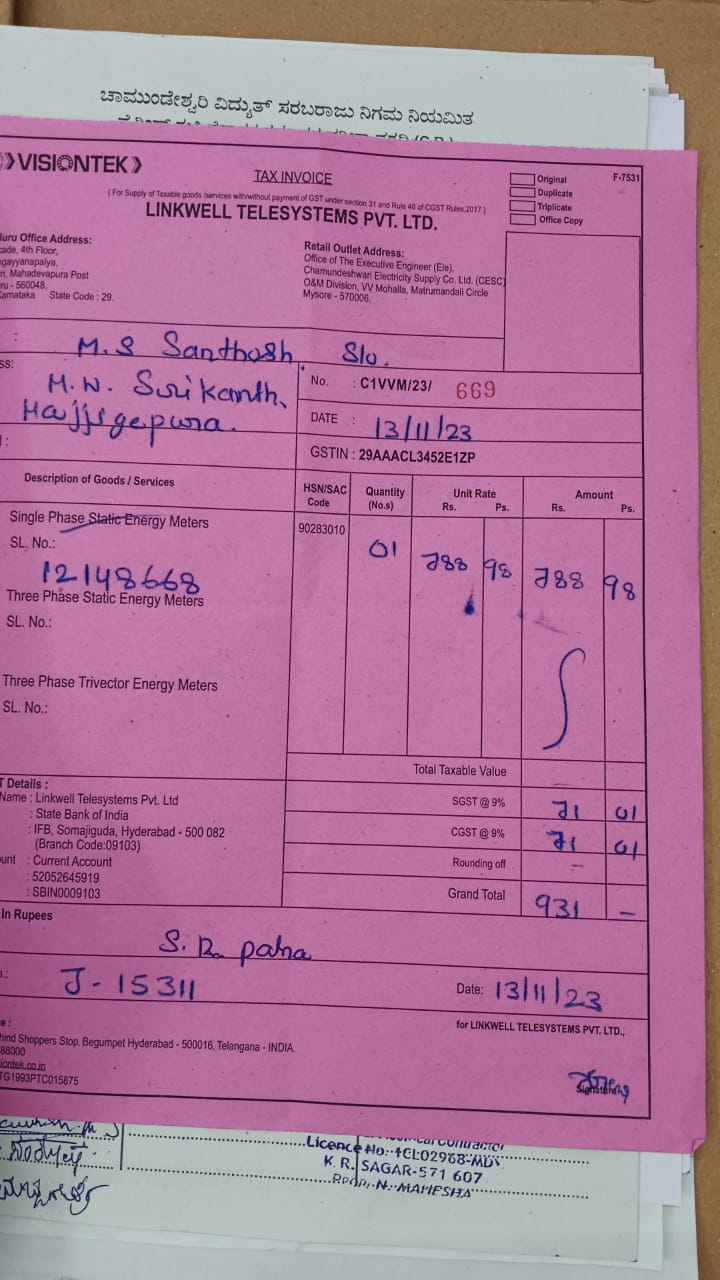 ಚಾಮುಂಡೇಶ್ವರಿ ವಿದ್ಯುತ್ ಸರಬರಾಜು ನಿಗಮ ನಿಯಮಿತ
VISIONTEK
TAX INVOICE
Original
Duplicate
Triplicate
Office Copy
F-7531
( For Supply of Taxable goods /services with/without payment of GST under section 31 and Rule 46 of CGST Rules,2017 )
LINKWELL TELESYSTEMS PVT. LTD.
luru Office Address:
cade, 4th Floor,
ngayyanapalya,
n, Mahadevapura Post
ru - 560048.
Karnataka State Code : 29.
Retail Outlet Address:
Office of The Executive Engineer (Ele),
Chamundeshwari Electricity Supply Co. Ltd. (CESC)
O&M Division, VV Mohalla, Matrumandali Circle
Mysore - 570006.
: M.S Santhosh. S/o.
ss: M.N. Srikanth,
Hajjigepura.
No. : C1VVM/23/ 669
DATE : 13/11/23
GSTIN : 29AAACL3452E1ZP
Description of Goods / Services
HSN/SAC Code
Quantity (No.s)
Unit Rate Rs. Ps.
Amount Rs. Ps.
Single Phase Static Energy Meters
90283010 01 788 98 788 98
SL. No.:
12148668
Three Phase Static Energy Meters
SL. No.:
Three Phase Trivector Energy Meters
SL. No.:
Total Taxable Value
T Details :
Name : Linkwell Telesystems Pvt. Ltd
: State Bank of India
: IFB, Somajiguda, Hyderabad - 500 082
(Branch Code:09103)
unt : Current Account
: 52052645919
: SBIN0009103
SGST @ 9% 71 01
CGST @ 9% 71 01
Rounding off –
Grand Total 931 –
In Rupees
S. R patna
J - 15311
Date: 13/11/23
for LINKWELL TELESYSTEMS PVT. LTD.,
hind Shoppers Stop, Begumpet Hyderabad - 500016, Telangana - INDIA.
88000
iontek.co.in
TG1993PTC015875
Signatory
Licence No. 1CL02968-MDY
K. R. SAGAR-571 607
N. MAHESHA